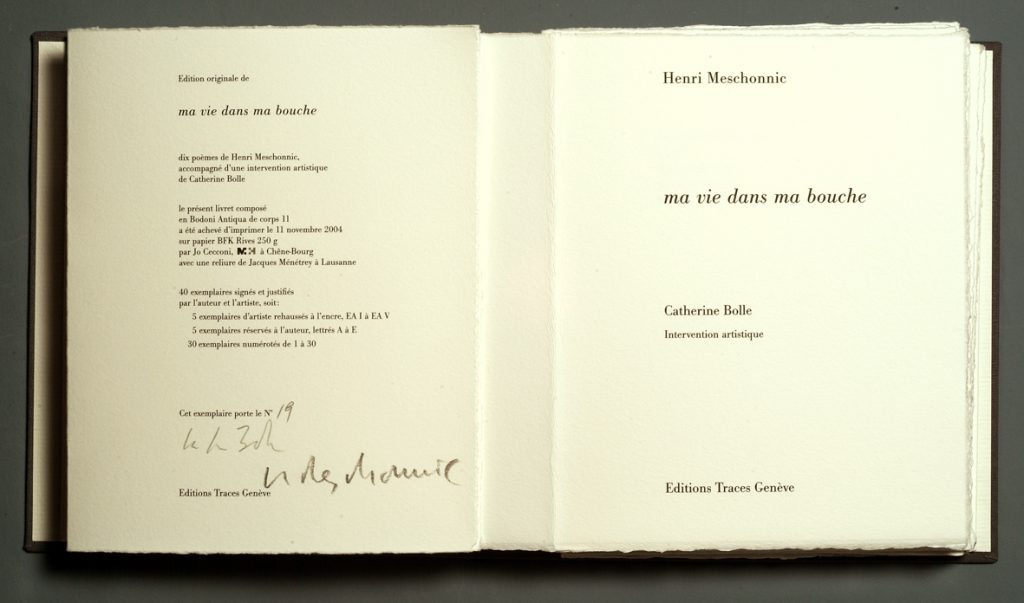 Edition originale de
ma vie dans ma bouche
dix poèmes de Henri Meschonnic,
accompagné d'une intervention artistique
de Catherine Bolle
le présent livret composé
en Bodoni Antiqua de corps 11
a été achevé d'imprimer le 11 novembre 2004
sur papier BFK Rives 250 g
par Jo Cecconi, à Chêne-Bourg
avec une reliure de Jacques Ménétrey à Lausanne
40 exemplaires signés et justifiés
par l'auteur et l'artiste, soit:
5 exemplaires d'artiste rehaussés à l'encre, EA I à EA V
5 exemplaires réservés à l'auteur, lettrés A à E
30 exemplaires numérotés de 1 à 30
Cet exemplaire porte le N° 19
Editions Traces Genève
Henri Meschonnic
ma vie dans ma bouche
Catherine Bolle
Intervention artistique
Editions Traces Genève